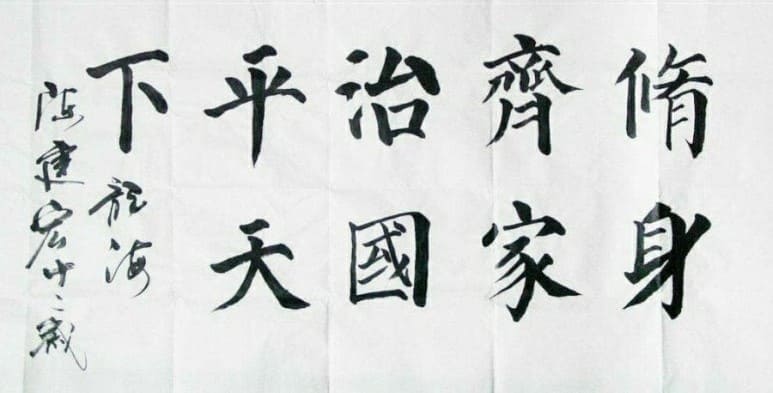 脩身
齊家
治國
平天
下
龍海
陈建宏十二歲